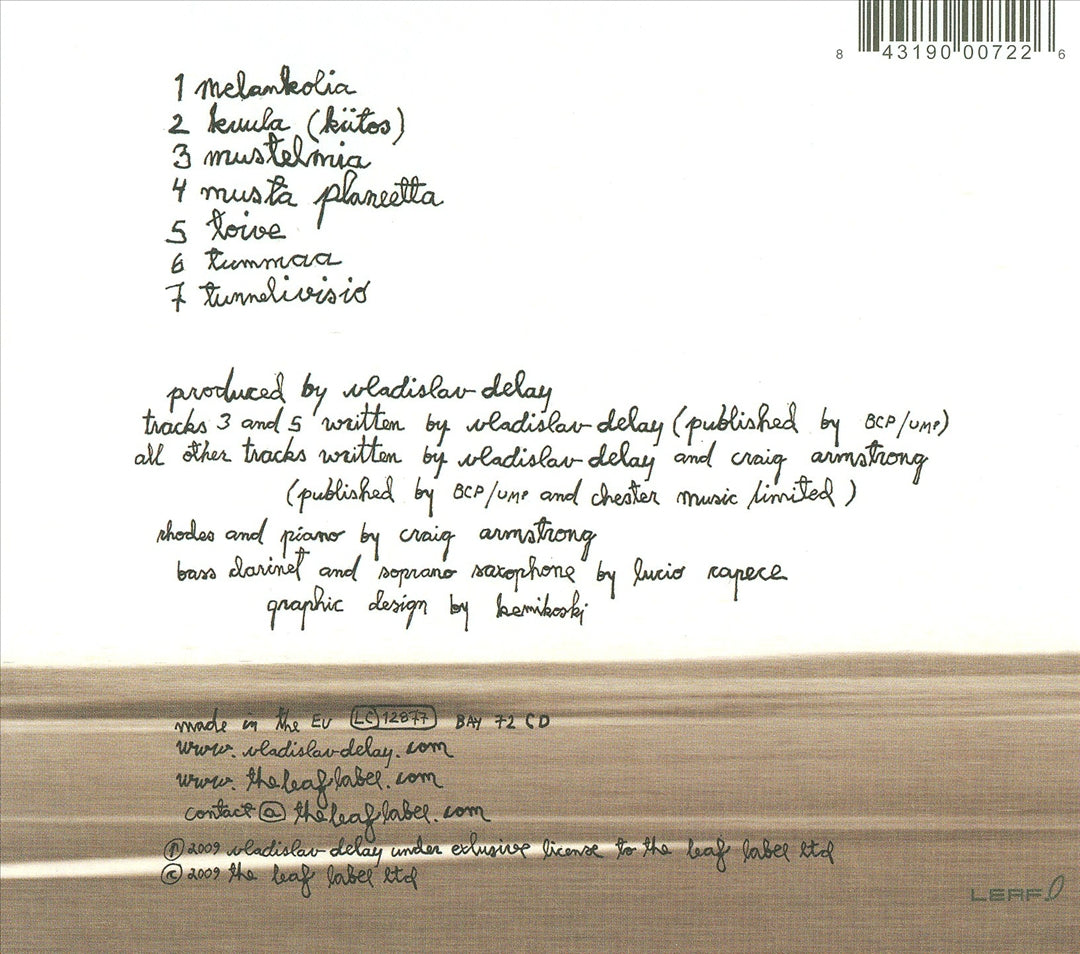 8 43190 00722 6
1 melankolia
2 kuula (kiitos)
3 mustelmia
4 musta planeetta
5 toive
6 tummaa
7 tunnelivisio
produced by vladislav delay
tracks 3 and 5 written by vladislav delay (published by BCP/UMP)
all other tracks written by vladislav delay and craig armstrong
(published by BCP/UMP and chester music limited)
rhodes and piano by craig armstrong
bass clarinet and soprano saxophone by lucio capece
graphic design by kemikoski
made in the EU LC 12877 BAY 72 CD
www.vladislavdelay.com
www.theleaflabel.com
contact@theleaflabel.com
℗ 2009 vladislav delay under exlusive license to the leaf label ltd
© 2009 the leaf label ltd
LEAF